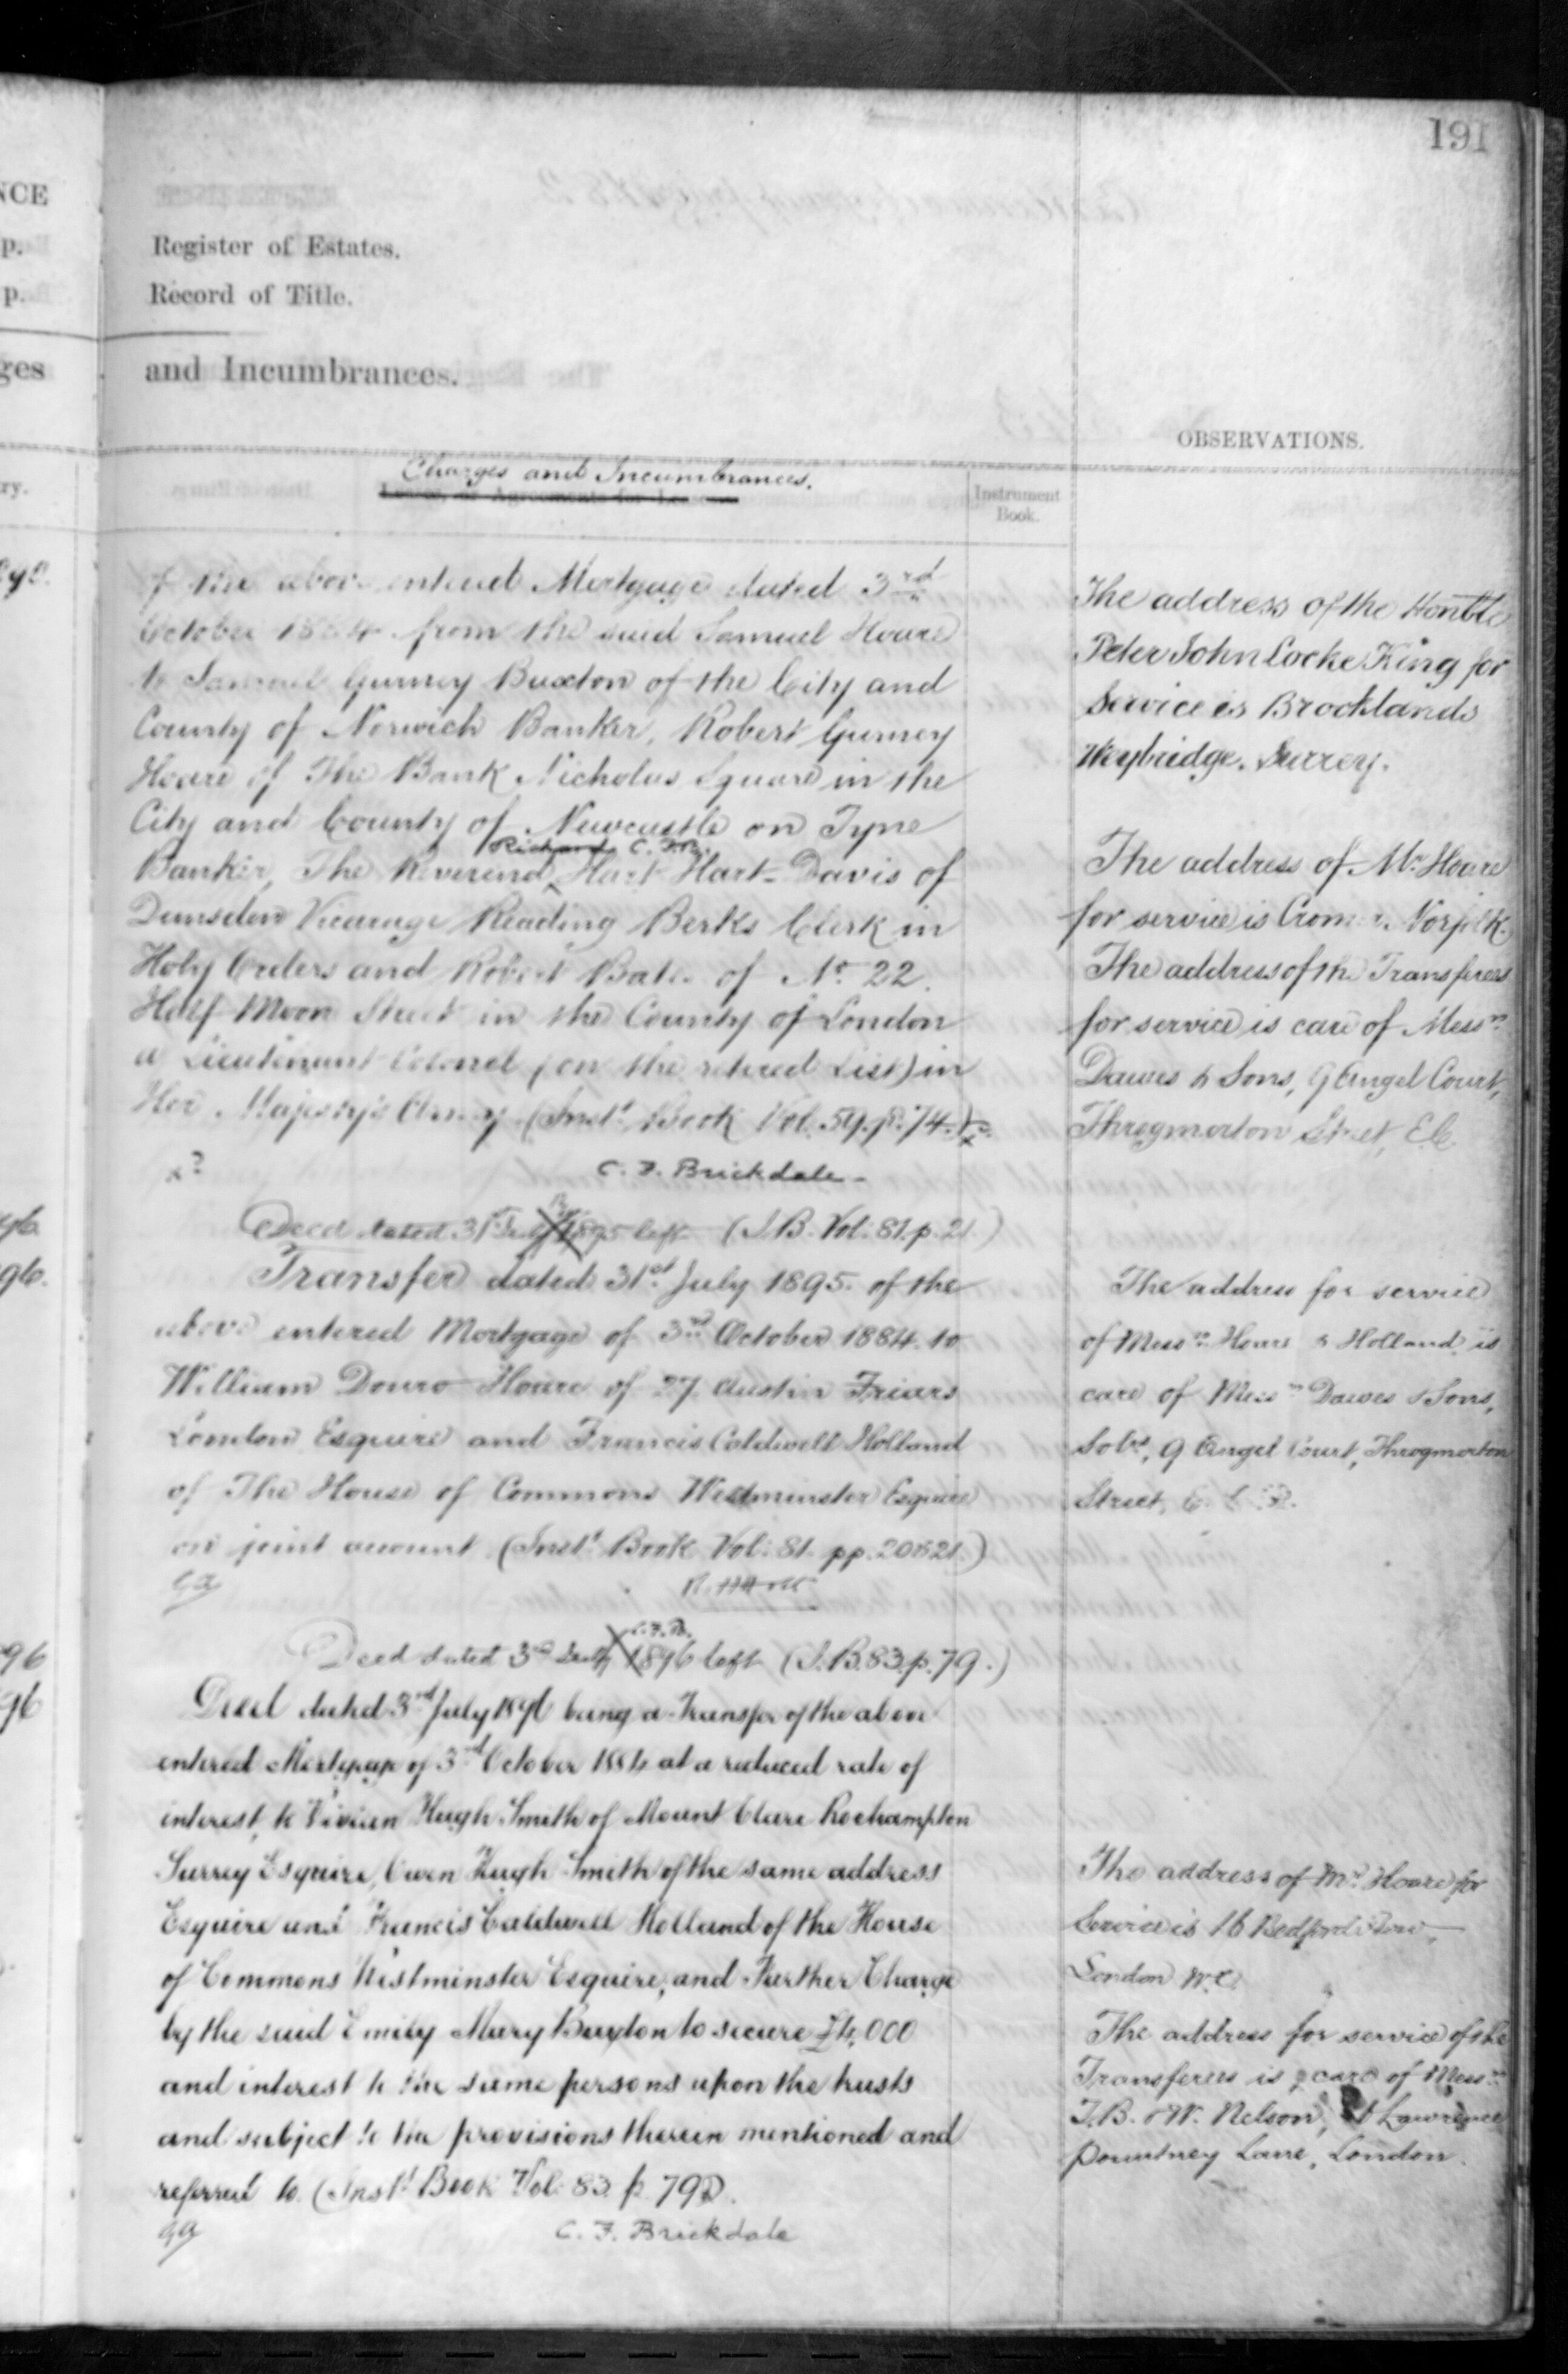 191
NCE
p.
p.
ges
ry.
Register of Estates.
Record of Title.
and Incumbrances.
OBSERVATIONS.
Charges and Incumbrances.
Instrument
Book.
of the above entered Mortgage dated 3rd
October 1884 from the said Samuel Hoare
to Samuel Gurney Buxton of the City and
County of Norwich Banker, Robert Gurney
Hoare of The Bank Nicholas Square in the
City and County of Newcastle on Tyne
Richard C.F.B.
Banker, The Reverend Hart Hart-Davis of
Dunsden Vicarage Reading Berks Clerk in
Holy Orders and Robert Bate of No 22.
Half Moon Street in the County of London
a Lieutenant Colonel (on the retired List) in
Her Majesty's Army (Inst. Book Vol. 59. p. 74.)
C. F. Brickdale
Deed dated 31st July 1895 left (I.B. Vol: 81. p. 21)
Transfer dated 31st July 1895. of the
above entered Mortgage of 3rd October 1884. to
William Douro Hoare of 27 Austin Friars
London Esquire and Francis Caldwell Holland
of The House of Commons Westminster Esquire
on joint account (Inst. Book Vol: 81. pp. 20 & 21.)
C.F.B.
Deed dated 3rd July 1896 left (I.B. 83. p. 79.)
Deed dated 3rd July 1896 being a Transfer of the above
entered Mortgage of 3rd October 1884 at a reduced rate of
interest, to Vivian Hugh Smith of Mount Clare Roehampton
Surrey Esquire, Owen Hugh Smith of the same address
Esquire and Francis Caldwell Holland of the House
of Commons Westminster Esquire, and Further Charge
by the said Emily Mary Buxton to secure £4,000
and interest to the same persons upon the trusts
and subject to the provisions therein mentioned and
referred to. (Inst. Book Vol: 83. p. 79).
C. F. Brickdale
The address of the Honble
Peter John Locke King for
Service is Brooklands
Weybridge. Surrey.
The address of Mr Hoare
for service is Cromer, Norfolk.
The address of the Transferees
for service is care of Messrs
Dawes & Sons, 9 Angel Court,
Throgmorton Street, E.C.
The address for service
of Messrs Hoare & Holland is
care of Messrs Dawes & Sons,
Solrs, 9 Angel Court, Throgmorton
Street, E.C.
The address of Mr Hoare for
Service is 16 Bedford Row
London W.C.
The address for service of the
Transferees is care of Messrs
T.B. & W. Nelson, Lawrence
Pountney Lane, London.